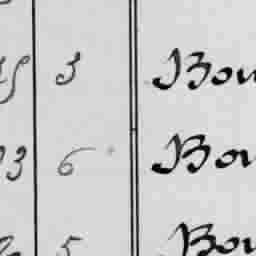 3 Bou
3 6 Bou
5 Bou